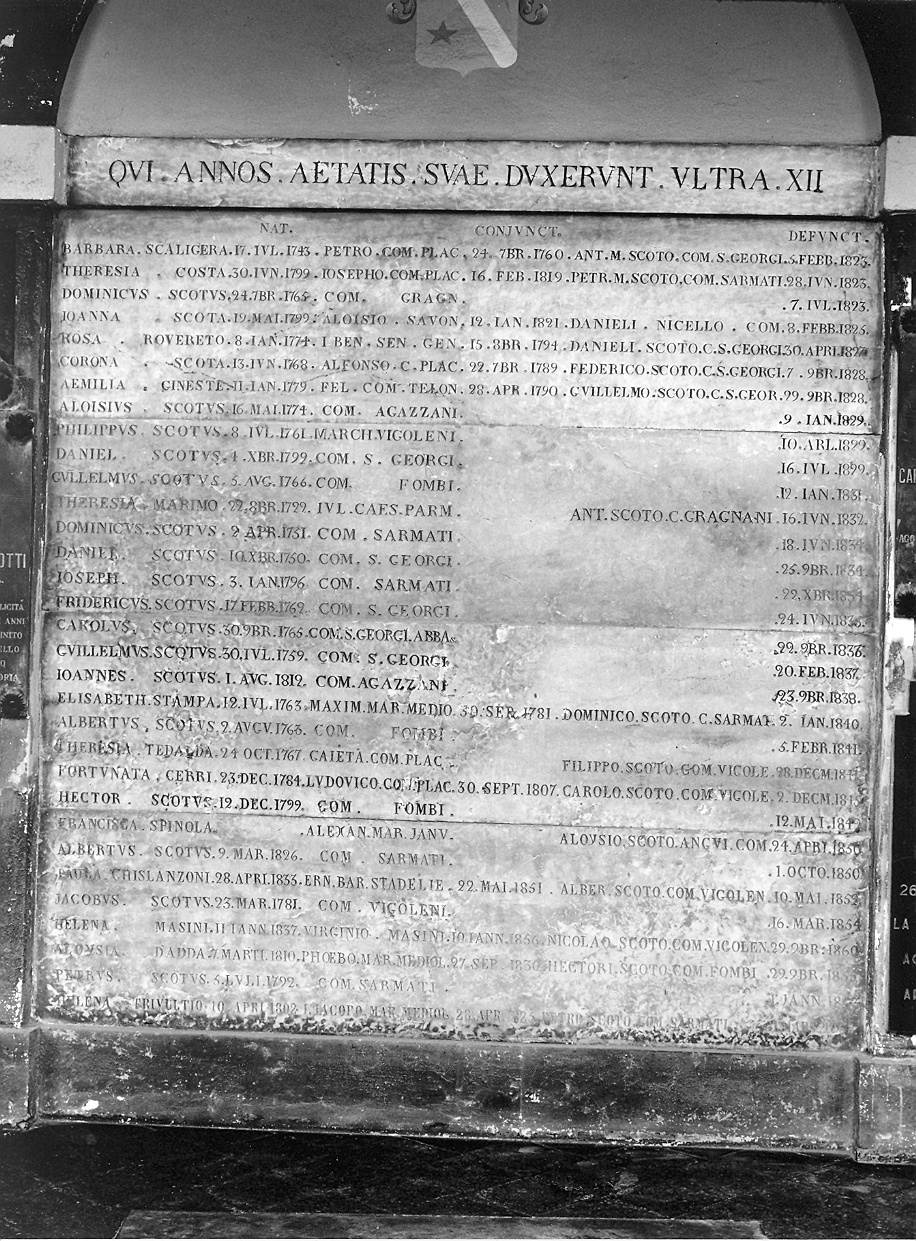 QVI . ANNOS . AETATIS . SVAE . DVXERVNT . VLTRA . XII
NAT. CONJVNCT. DEFVNCT.
BARBARA. SCALIGERA.17.IVL.1743. PETRO.COM.PLAC. 24. 7BR.1760. ANT.M.SCOTO.COM.S.GEORGI.5.FEBB.1823.
THERESIA . COSTA.30.IVN.1799. IOSEPHO.COM.PLAC. 16. FEB.1819. PETR.M.SCOTO.COM.SARMATI.28.IVN.1823.
DOMINICVS . SCOTVS.24.7BR.1765. COM. GRAGN. .7. IVL.1823.
IOANNA . SCOTA.19.MAI.1799. ALOISIO . SAVON. 12. IAN.1821. DANIELI . NICELLO . COM.8.FEBB.1825.
ROSA . ROVERETO.8.IAN.1774. I BEN. SEN. GEN. 15.8BR.1794. DANIELI. SCOTO.C.S.GEORGI.30.APRI.
CORONA . SCOTA.13.IVN.1768. ALFONSO.C.PLAC. 22.7BR.1789. FEDERICO.SCOTO.C.S.GEORGI.7.9BR.1828.
AEMILIA . GINESTE.11.IAN.1779. FEL. COM. TELON. 28.APR.1790. GVILLELMO.SCOTO.C.S.GEOR.29.9BR.1828.
ALOISIVS . SCOTVS.16.MAI.1774. COM. AGAZZANI. .9. IAN.1829.
PHILIPPVS. SCOTVS.8.IVL.1761.MARCH.VIGOLENI. .10.ARL.1829.
DANIEL. SCOTVS.4.XBR.1799.COM. S. GEORGI. .16.IVL.1829.
GVLLELMVS.SCOTVS.5.AVG.1766.COM. FOMBI. .12.IAN.1831.
THERESIA. MARIMO.22.8BR.1729. IVL.CAES.PARM. ANT.SCOTO.C.GRAGNANI.16.IVN.1832.
DOMINICVS.SCOTVS.2.APR.1731. COM SARMATI. .18.IVN.1834
DANIEL. SCOTVS.10.XBR.1750. COM. S. GEORGI. .25.9BR.1834.
IOSEPH. SCOTVS.3. IAN.1796. COM. SARMATI. .22.XBR.
FRIDERICVS.SCOTVS.17.FEBB.1762. COM. S. GEORGI. .24.IVN.1836.
CAROLVS. SCOTVS.30.9BR.1765.COM.S.GEORGI.ABBA. .22.9BR.1836.
GVILLELMVS.SCOTVS.30.IVL.1759. COM. S.GEORGI. .20.FEB.1837.
IOANNES. SCOTVS.1.AVG.1812. COM.AGAZZANI. .23.9BR.1838.
ELISABETH.STAMPA.12.IVL.1763.MAXIM.MAR.MEDIO. 30.SER.1781. DOMINICO.SCOTO.C.SARMAT. 2. IAN.1840.
ALBERTVS. SCOTVS.2.AVGV.1763. COM. FOMBI. .5.FEBR.1841.
THERESIA. TEDALDA.24 OCT.1767. CAIETA.COM.PLAC. FILIPPO.SCOTO.COM.VIGOLE.28.DECM.
FORTVNATA. CERRI.23.DEC.1784.LVDOVICO.COM.PLAC.30.SEPT.1807.CAROLO.SCOTO.COM.VIGOLE.2.DECM.
HECTOR. SCOTVS.12.DEC.1799. COM. FOMBI. .12.MAI.
FRANCISCA. SPINOLA. .ALEXAN.MAR.JANV. ALOYSIO.SCOTO.ANGVI.COM.24.APRI.1850
ALBERTVS. SCOTVS.9.MAR.1826. COM. SARMATI. .1.OCTO.1850
PAVLA.GHISLANZONI.28.APRI.1833.ERN.BAR.STADELIE.22.MAI.1851. ALBER.SCOTO.COM.VIGOLEN.10.MAI.1852.
JACOBVS. SCOTVS.23.MAR.1781. COM. VIGOLENI. .16.MAR.1854
HELENA. MASINI.11 IANN.1837.VIRGINIO. MASINI.10.IANN.1856.NICOLAO.SCOTO.COM.VIGOLEN.29.9BR.1860.
ALOYSIA. DADDA.7.MARTI.1810.PHOEBO.MAR.MEDIOL.27.SEP. 1830.HECTORI.SCOTO.COM.FOMBI .29.9BR.
PETRVS. SCOTVS.5.LVLI.1792. COM.SARMATI. JANN.
TRIVULTIO.10. APRI.1802. IACOPO.MAR.MEDIOL.28.APR. PETRO.SCOTO.COM.SARMATI.
OTTI